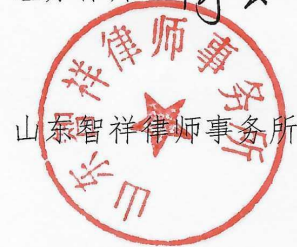 山东智祥律师事务所
山东智祥律师事务所